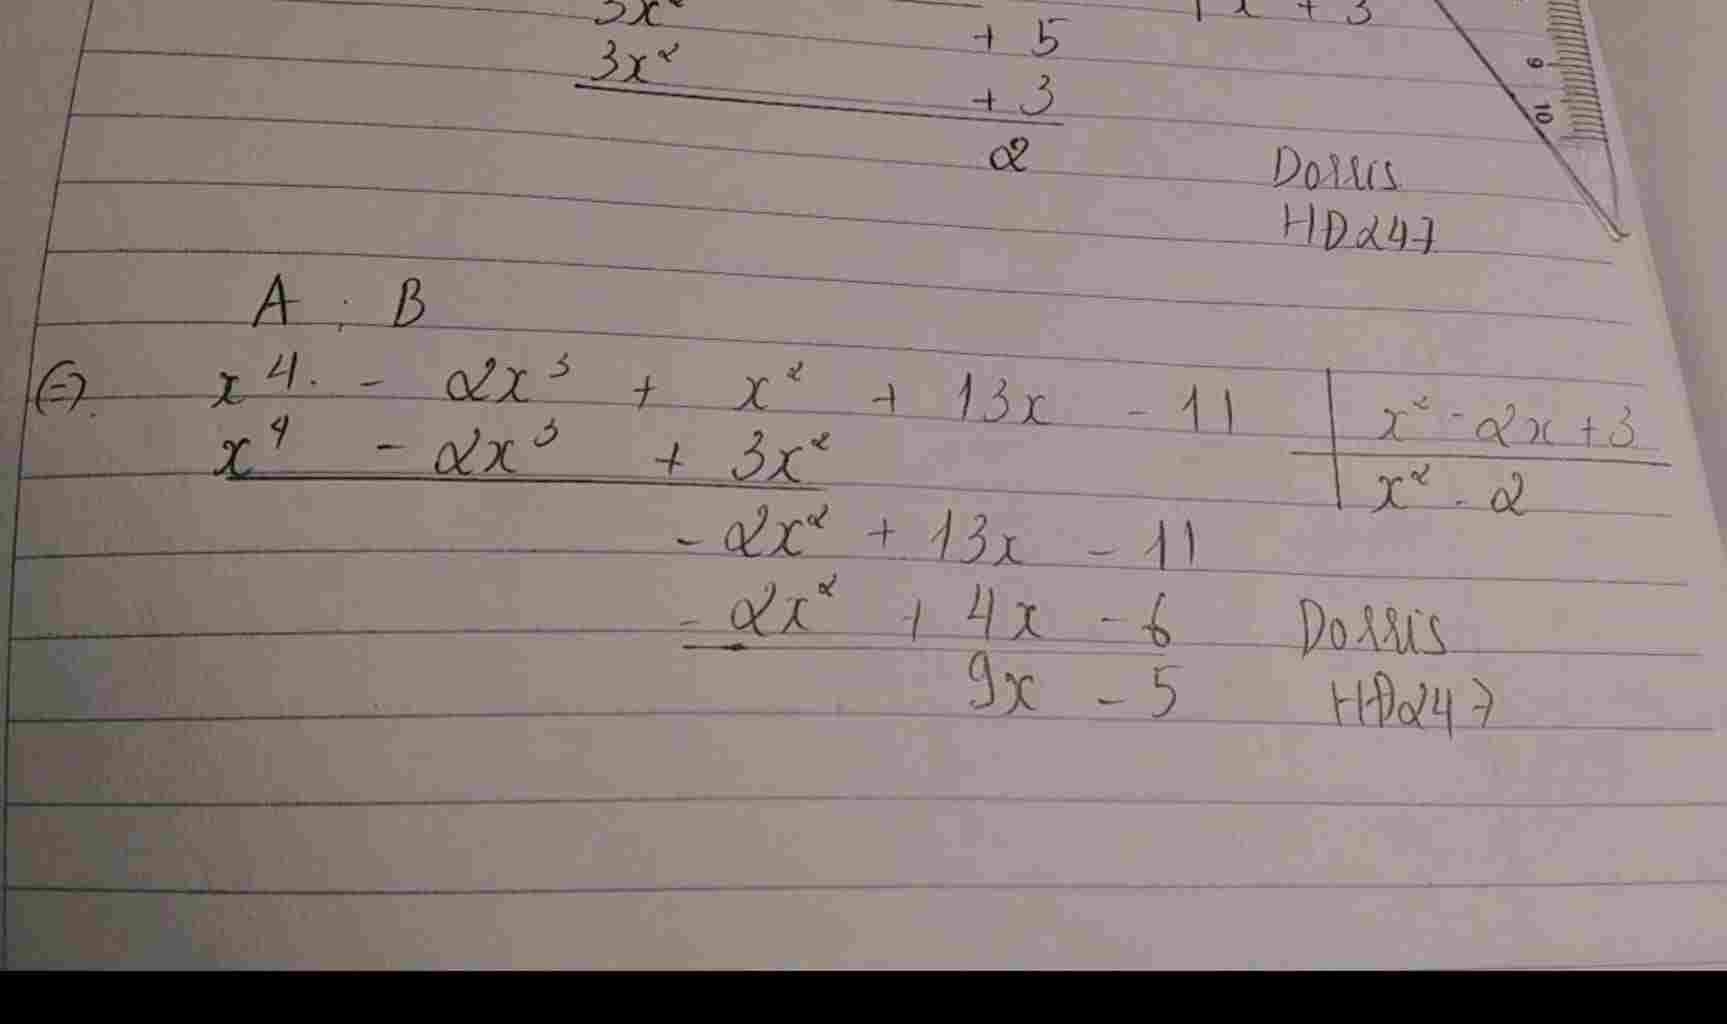 3x²
+ 5
x + 3
3x²
+ 3
2
9
10
Dorris
HD247
A : B
(=) x⁴ - 2x³ + x² + 13x - 11 | x² - 2x + 3
x⁴ - 2x³ + 3x² | x² - 2
- 2x² + 13x - 11
- 2x² + 4x - 6
9x - 5
Dorris
HD247